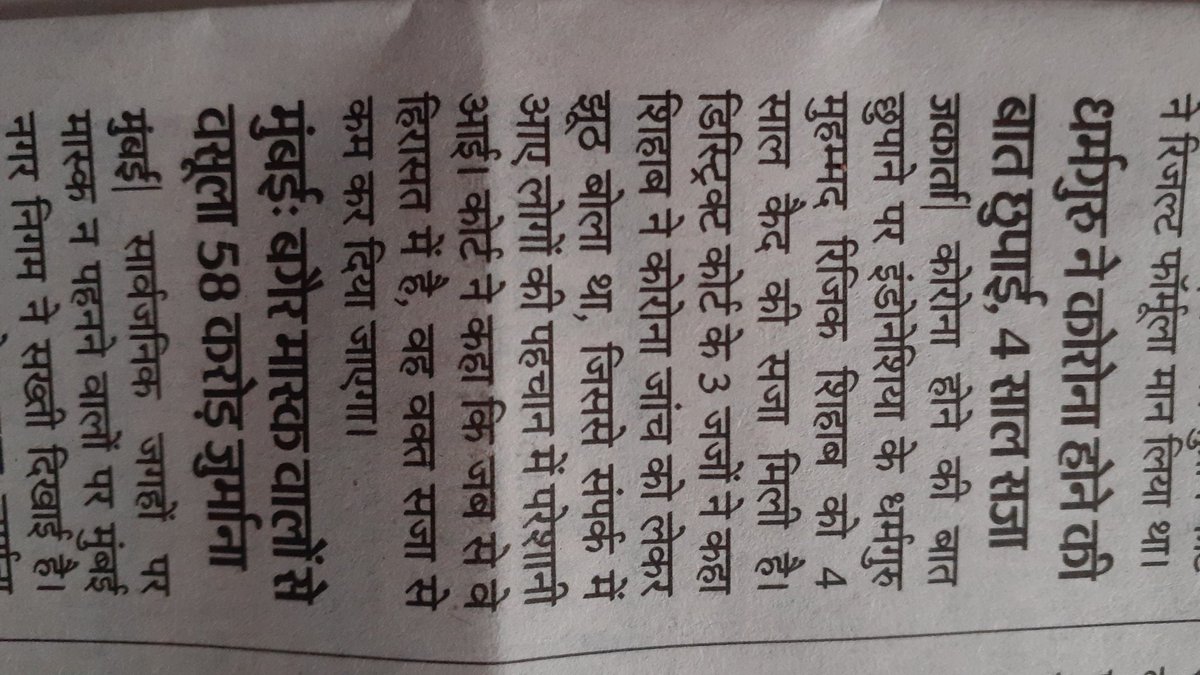 ने रिजल्ट फॉर्मूला मान लिया था।
धर्मगुरु ने कोरोना होने की
बात छुपाई, 4 साल सजा
जकार्ता| कोरोना होने की बात
छुपाने पर इंडोनेशिया के धर्मगुरु
मुहम्मद रिजिक शिहाब को 4
साल कैद की सजा मिली है।
डिस्ट्रिक्ट कोर्ट के 3 जजों ने कहा
शिहाब ने कोरोना जांच को लेकर
झूठ बोला था, जिससे संपर्क में
आए लोगों की पहचान में परेशानी
आई। कोर्ट ने कहा कि जब से वे
हिरासत में है, वह वक्त सजा से
कम कर दिया जाएगा।
मुंबई: बगैर मास्क वालों से
वसूला 58 करोड़ जुर्माना
मुंबई| सार्वजनिक जगहों पर
मास्क न पहनने वालों पर मुंबई
नगर निगम ने सख्ती दिखाई है।